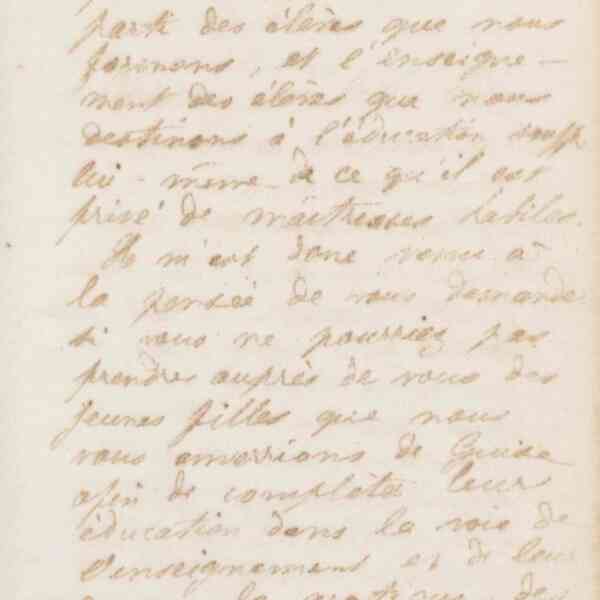 parti des élèves que nous
formons, et l'enseigne-
ment des élèves que nous
destinons à l'éducation souffre
lui-même de ce qu'il est
privé de maîtresses habiles.
Il m'est donc venu à
la pensée de vous demander
si vous ne pourriez pas
prendre auprès de vous des
jeunes filles que nous
vous enverrions de Guise
afin de compléter leur
éducation dans la voie de
l'enseignement et de leur
la pratique des